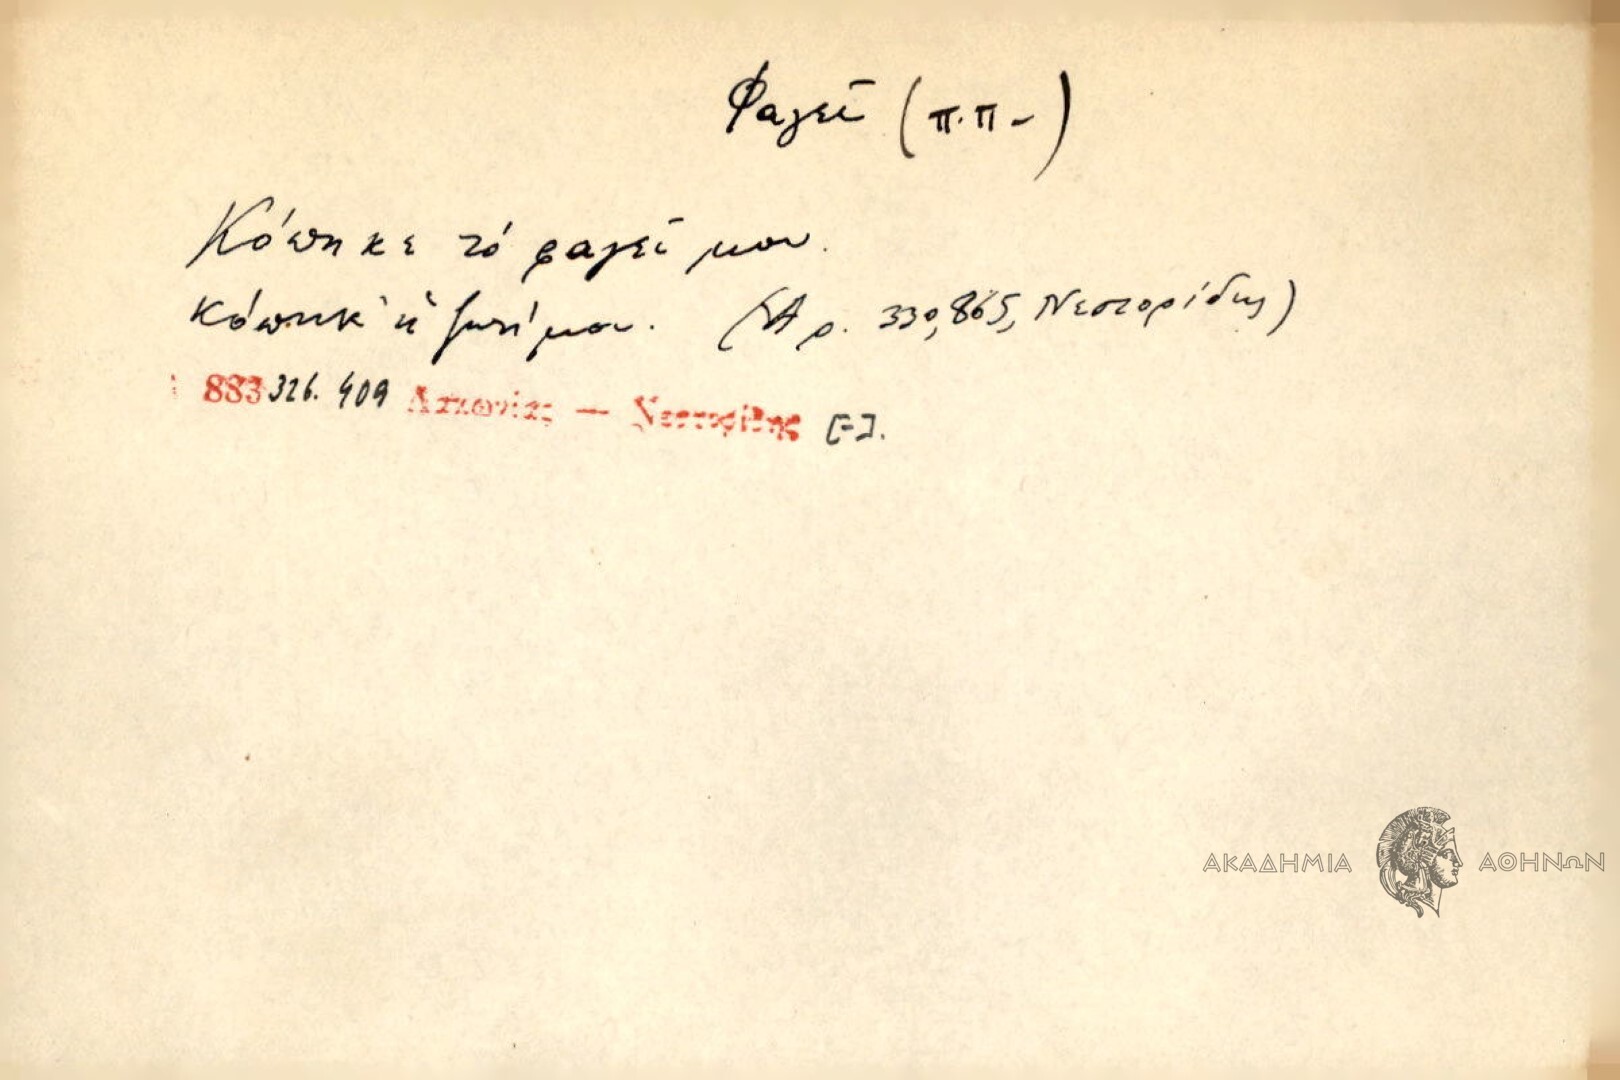 Φαγεῖ (π.π-)
Κόπηκε τό φαγεῖ μου.
Κόπηκ' ἡ ζωή μου. (Ἀρ. 330,865, Νεστορίδης)
883 326. 409 Λακωνίας — Νεστορίδης [-].
ΑΚΑΔΗΜΙΑ ΑΘΗΝΩΝ